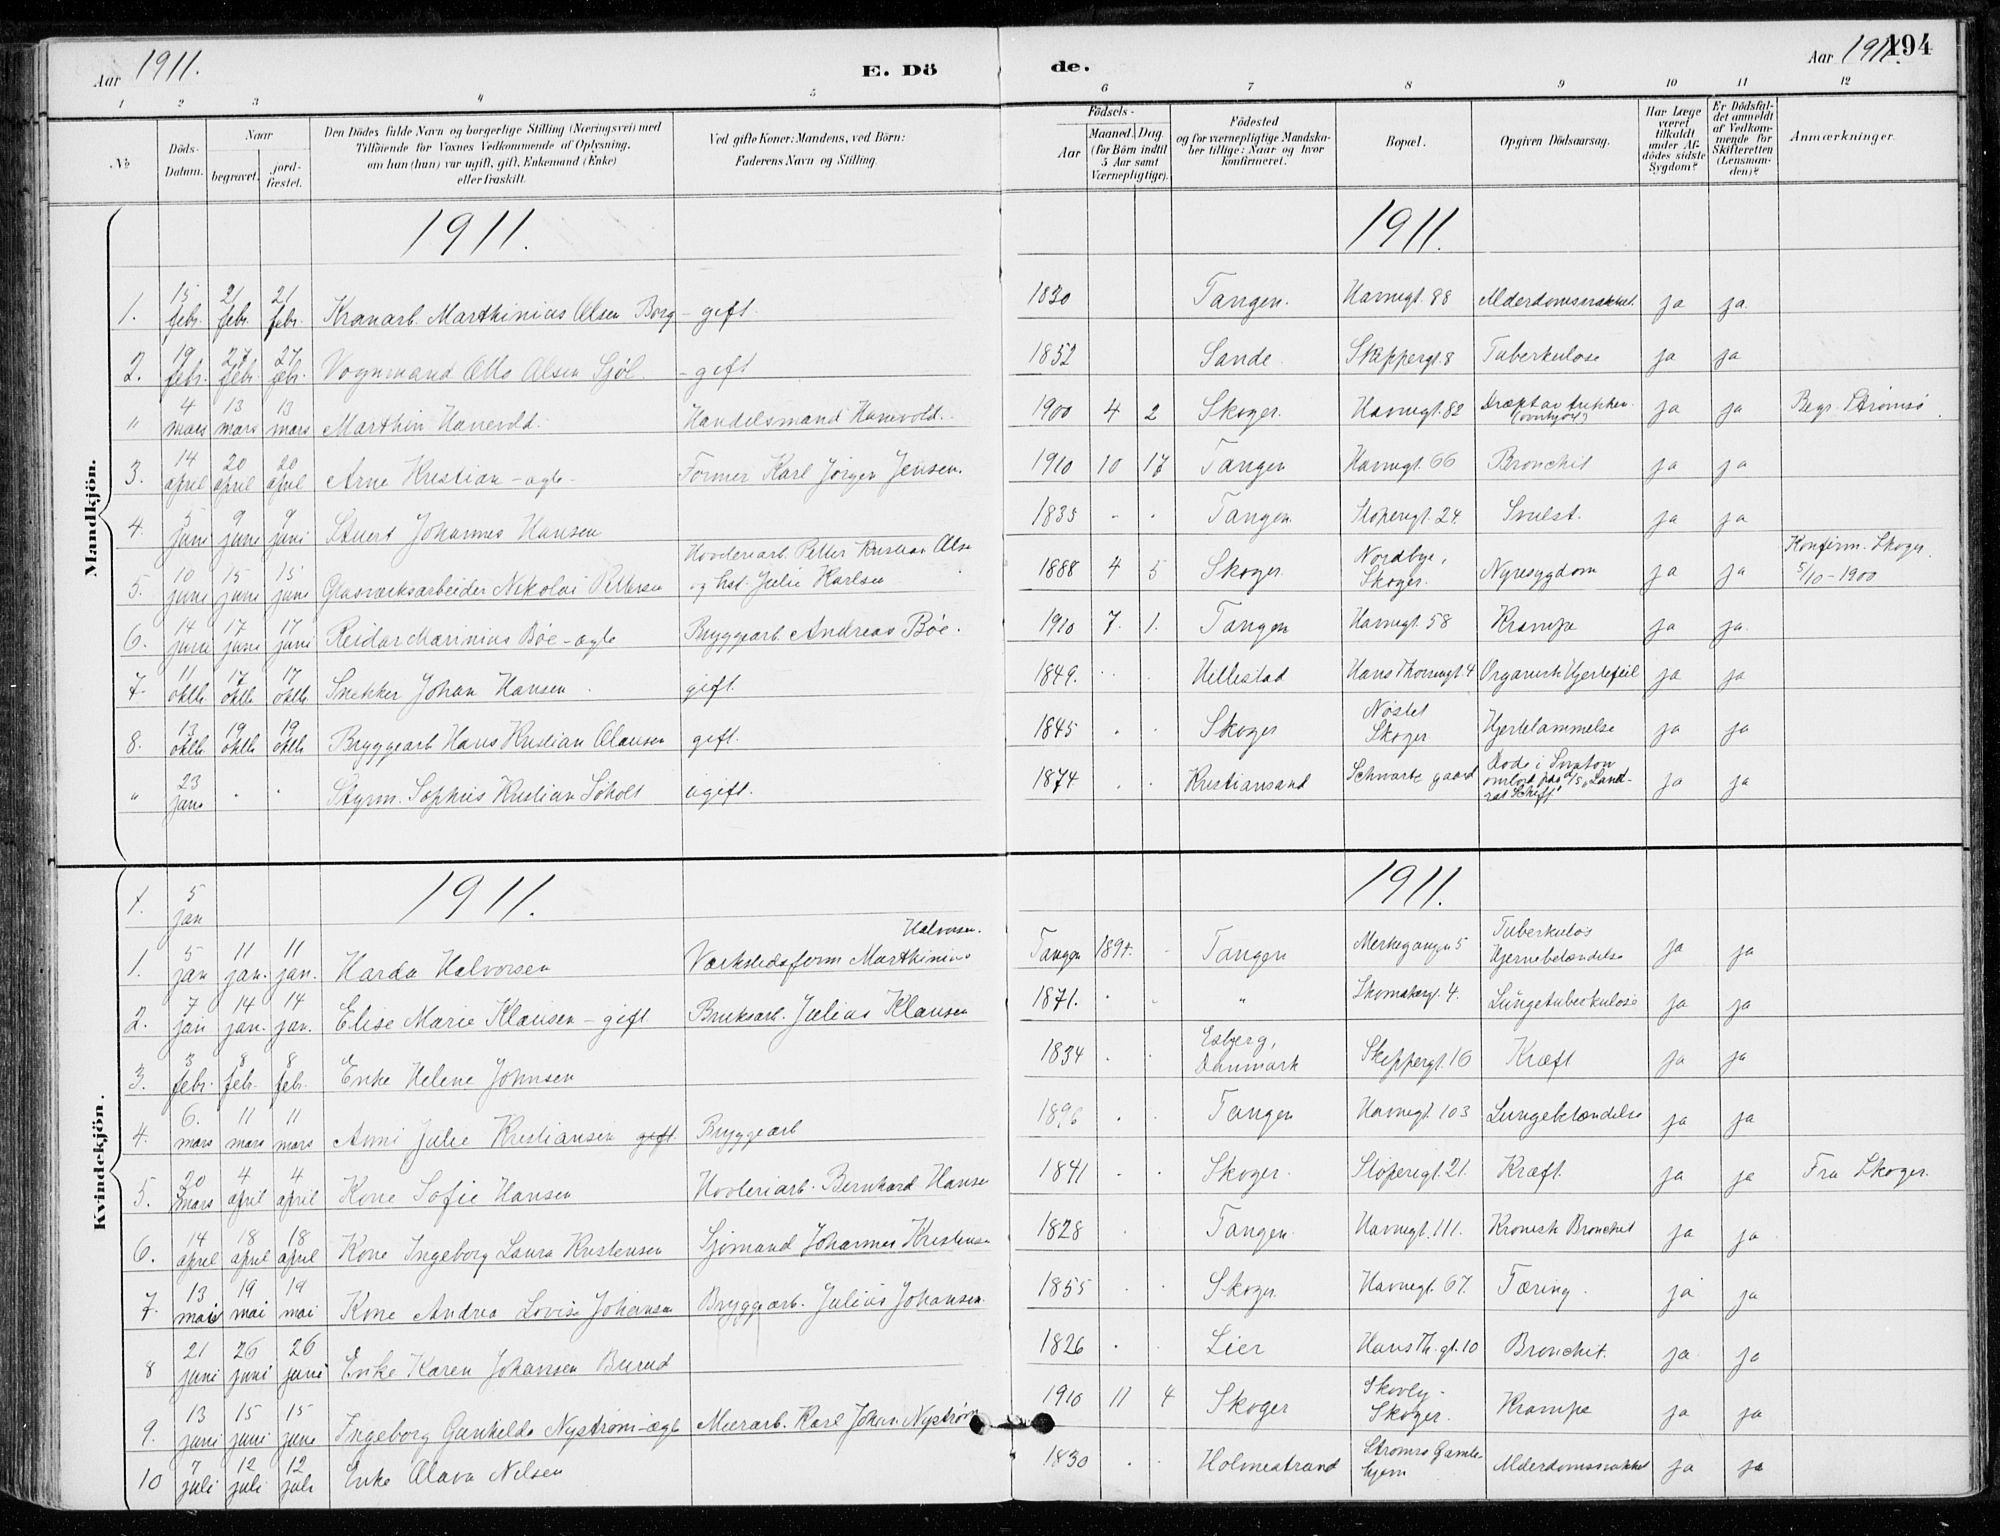 Aar 1911. E. Dö de. Aar 1911. 194
1 2 3 4 5 6 7 8 9 10 11 12
№
Döds-Datum.
Naar
begravet.
jord-fæstet.
Den Dödes fulde Navn og borgerlige Stilling (Næringsvei) med
Tilföiende for Voxnes Vedkommende af Oplysning,
om han (hun) var ugift, gift, Enkemand (Enke)
eller fraskilt.
Ved gifte Koner: Mandens, ved Börn:
Faderens Navn og Stilling.
Födsels-
Aar
Maaned. Dag.
(for Börn indtil
5 Aar samt
Værnepligtige).
Födested
og for værnepligtige Mandska-
ber tillige: Naar og hvor
konfirmeret.
Bopæl.
Opgiven Dödsaarsag.
Har Læge
været
tilkaldt
under Af-
dödes sidste
Sygdom?
Er Dödsfal-
det anmeldt
af Vedkom-
mende for
Skifteretten
(Lensman-
den)?
Anmærkninger.
Mandkjön.
1911. 1911.
1. 15 febr. 21 febr. 21 febr. Kranarb. Marthinius Olsen Borg - gift. 1830 Tangen. Havnegt. 88 Alderdomssvakhet ja ja.
2. 19 febr. 27 febr. 27 febr. Vognmand Otto Olsen Sjöl. - gift 1852 Sande. Skippergt. 8 Tuberkulose ja ja
" 4 mars 13 mars 13 mars Marthin Hanevold. Handelsmand Hanevold. 1900 4 2 Skoger. Havnegt. 82 Dræpt av trikken. ja ja Begr. Strømsø.
3. 14 april 20 april 20 april Arne Kristian - egte - Former Karl Jørgen Jensen. 1910 10 17 Tangen Havnegt. 66 Bronchit ja ja
4. 5 juni 9 juni 9 juni Stuert Johannes Hansen 1835 " " Tangen Støperigt. 24. Svulst. ja ja
5. 10 juni 15 juni 15 juni Glasværksarbeider Nikolai Pettersen Hovleriarb. Petter Kristian Olse
og hst. Julie Karlsen 1888 4 5 Skoger. Nordbye, Skoger. Nyresygdom ja ja Konfirm. Skoger. 5/10 - 1900
6. 14 juni 17 juni 17 juni Reidar Marinius Bøe - egte Bryggearb. Andreas Bøe. 1910 7. 1. Tangen Havnegt. 58 Krampe ja ja.
7. 11 oktb 17 oktb 17 oktb Snekker Johan Hansen gift. 1849. Hillestad Hans Thornsgt 4 Organisk Hjertefeil ja ja
8. 13 oktb 19 oktb 19 oktb Bryggearb. Hans Kristian Olausen gift. 1845 Skoger Nøstet Skoger Hjertelammelse ja ja
" 23 jan " " Styrm. Sophus Kristian Søholt ugift. 1874. Kristiansand Schwartz gaard Døde i Swatow
ombord paa d/s „Land-
rat Schiff" ja ja
Kvindekjön.
1. 5 jan 1911. 1911.
1. 5 jan 11 jan. 11 jan. Harda Halvorsen Værkstedsform Marthinius Halvorsen. Tangen 1894. Tangen Merkegangen 5 Tuberkuløs
Hjernebetændelse ja ja
2. 7 jan 14 jan. 14 jan. Elise Marie Klausen - gift. Bruksarb. Julius Klausen 1871. " Skomakergt. 4. Lungetuberkulose ja ja
3. 3 febr. 8 febr. 8 feb. Enke Helene Johnsen 1834 Esbjerg, Danmark Skippergt. 16 Kræft ja ja
4. 6. mars 11 mars 11 mars Anni Julie Kristiansen gift. Bryggearb 1896 Tangen Havnegt. 103 Lungebetændelse ja ja
5. 20 mars 4 april 4 april Kone Sofie Hansen Hovleriarb. Bernhard Hansen 1841 Skoger. Støperigt. 21. Kræft. ja ja Fra Skoger.
6. 14 april 18 april 18 april Kone Ingeborg Laura Kristensen Sjømand Johannes Kristensen 1828 Tangen. Havnegt. 111. Kronisk Bronchit ja ja
7. 13 mai 19 mai 19 mai Kone Andrea Lovise Johansen Bryggearb. Julius Johansen. 1855 Skoger. Havnegt. 67. Tæring. ja ja
8 21 juni 26 juni 26 juni Enke Karen Johansen Burud 1826 Lier Hans Th. gt. 10 Bronchit. ja ja
9. 13 juni 15 juni 15 juni Ingeborg Gunhilda Nystrøm - egte Murarb. Karl Johan Nystrøm 1910 11 4 Skoger Skovly - Skoger. Krampe ja ja
10 7 juli 12 juli 12 juli Enke Olava Nilsen 1830 Holmestrand Strømsø Gamle-
hjem Alderdomssvakhet ja ja